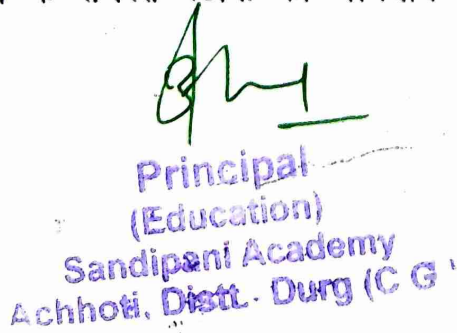 Principal
(Education)
Sandipani Academy
Achhoti, Distt. - Durg (C G